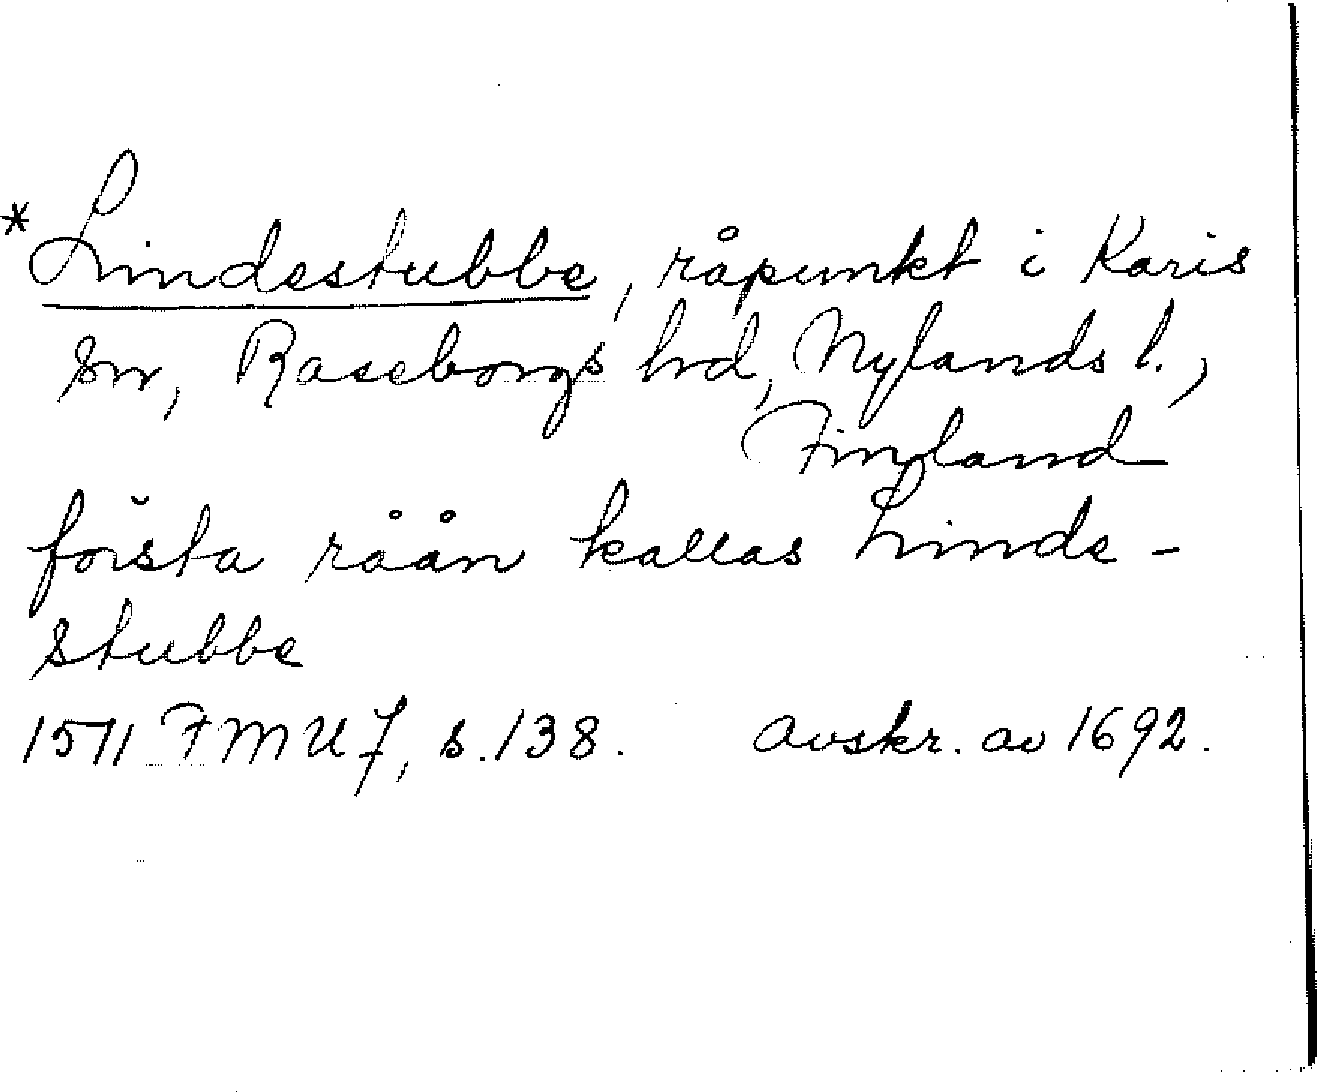 *Lindestubbe, råpunkt i Karis
sn, Raseborgs hd, Nylands l.,
Finland
första råån kallas Linde-
stubbe
1571 FMU 7, s. 138. Avskr. av 1692.